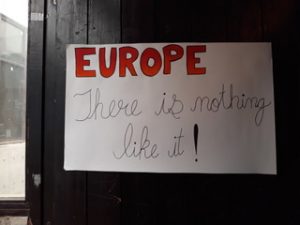 EUROPE
There is nothing
like it!